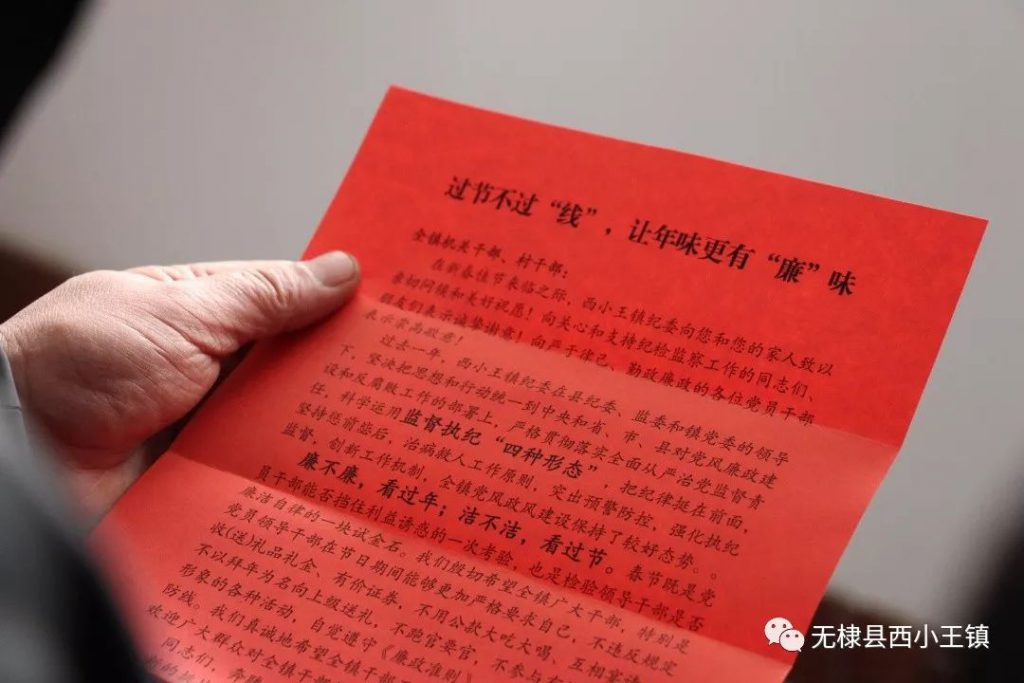 过节不过“线”，让年味更有“廉”味
全镇机关干部、村干部：
在新春佳节来临之际，西小王镇纪委向您和您的家人致以
亲切问候和美好祝愿！向关心和支持纪检监察工作的同志们、
朋友们表示诚挚谢意！向严于律己、勤政廉政的各位党员干部
表示崇高敬意！
过去一年，西小王镇纪委在县纪委、监委和镇党委的领导
下，坚决把思想和行动统一到中央和省、市、县对党风廉政建
设和反腐败工作的部署上，严格贯彻落实全面从严治党监督责
任，科学运用监督执纪“四种形态”，把纪律挺在前面，
坚持惩前毖后、治病救人工作原则，突出预警防控，强化执纪
监督，创新工作机制，全镇党风政风建设保持了较好态势。
廉不廉，看过年；洁不洁，看过节。春节既是党
员干部能否挡住利益诱惑的一次考验，也是检验领导干部是否
廉洁自律的一块试金石。我们殷切希望全镇广大干部，特别是
党员领导干部在节日期间能够更加严格要求自己，不违反规定
收(送)礼品礼金、有价证券，不用公款大吃大喝、互相宴请
不以拜年为名向上级送礼，不跑官要官，不参与
形象的各种活动，自觉遵守《廉政准则》
防线。我们真诚地希望全镇干
欢迎广大群众对全镇干部
同志们，奔
无棣县西小王镇